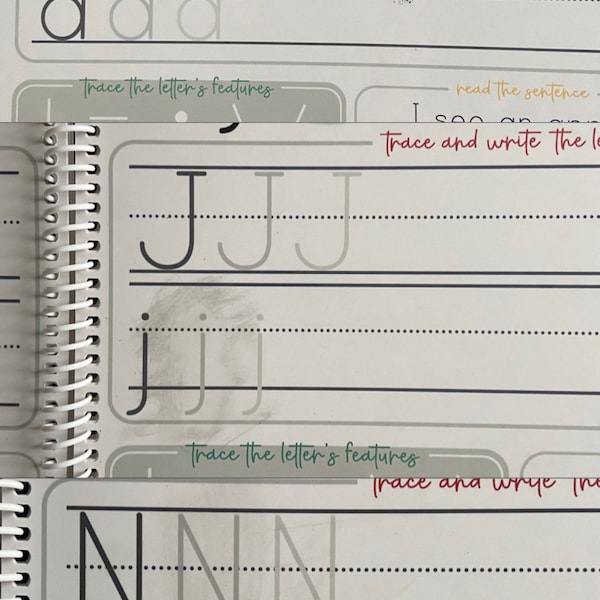 a a a
trace the letter's features
read the sentence
I see an
trace and write the
J J J
j j j
trace the letter's features
trace and write the
N N N